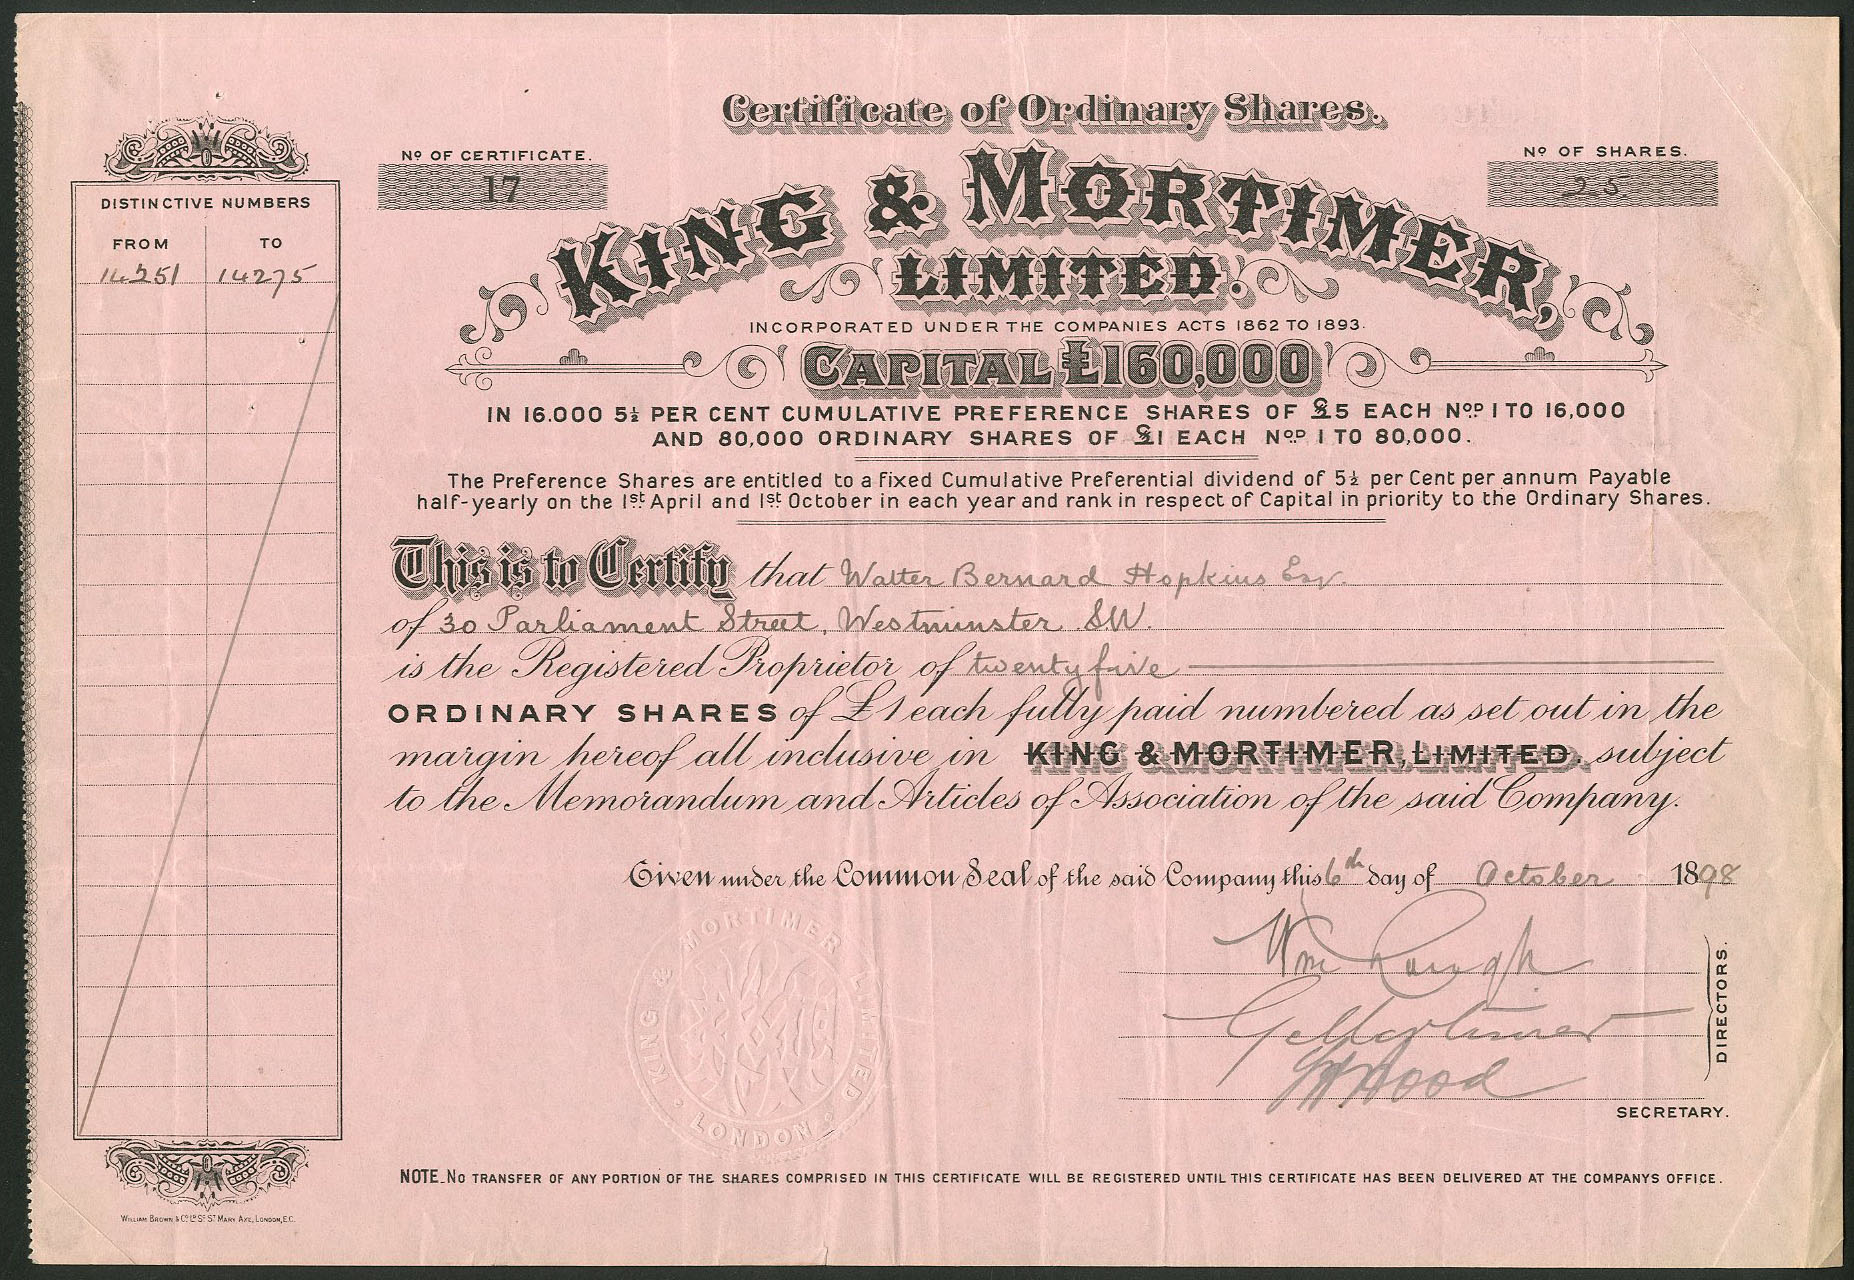 Certificate of Ordinary Shares.
No OF CERTIFICATE.
17
No OF SHARES.
25
KING & MORTIMER,
LIMITED.
INCORPORATED UNDER THE COMPANIES ACTS 1862 TO 1893.
CAPITAL £160,000
IN 16.000 5½ PER CENT CUMULATIVE PREFERENCE SHARES OF £5 EACH Nos 1 TO 16,000
AND 80,000 ORDINARY SHARES OF £1 EACH Nos 1 TO 80,000.
The Preference Shares are entitled to a fixed Cumulative Preferential dividend of 5½ per Cent per annum Payable
half-yearly on the 1st April and 1st October in each year and rank in respect of Capital in priority to the Ordinary Shares.
DISTINCTIVE NUMBERS
FROM TO
14251 14275
This is to Certify that Walter Bernard Hopkins Esqr.
of 30 Parliament Street, Westminster S.W.
is the Registered Proprietor of twenty five
ORDINARY SHARES of £1 each fully paid numbered as set out in the
margin hereof all inclusive in KING & MORTIMER, LIMITED. subject
to the Memorandum and Articles of Association of the said Company.
Given under the Common Seal of the said Company this 6th day of October 1898
KING & MORTIMER LIMITED
LONDON
Wm Rough
G Mortimer
DIRECTORS.
Wood
SECRETARY.
NOTE_No TRANSFER OF ANY PORTION OF THE SHARES COMPRISED IN THIS CERTIFICATE WILL BE REGISTERED UNTIL THIS CERTIFICATE HAS BEEN DELIVERED AT THE COMPANYS OFFICE.
WILLIAM BROWN & Co Ld St MARY AXE, LONDON, E.C.